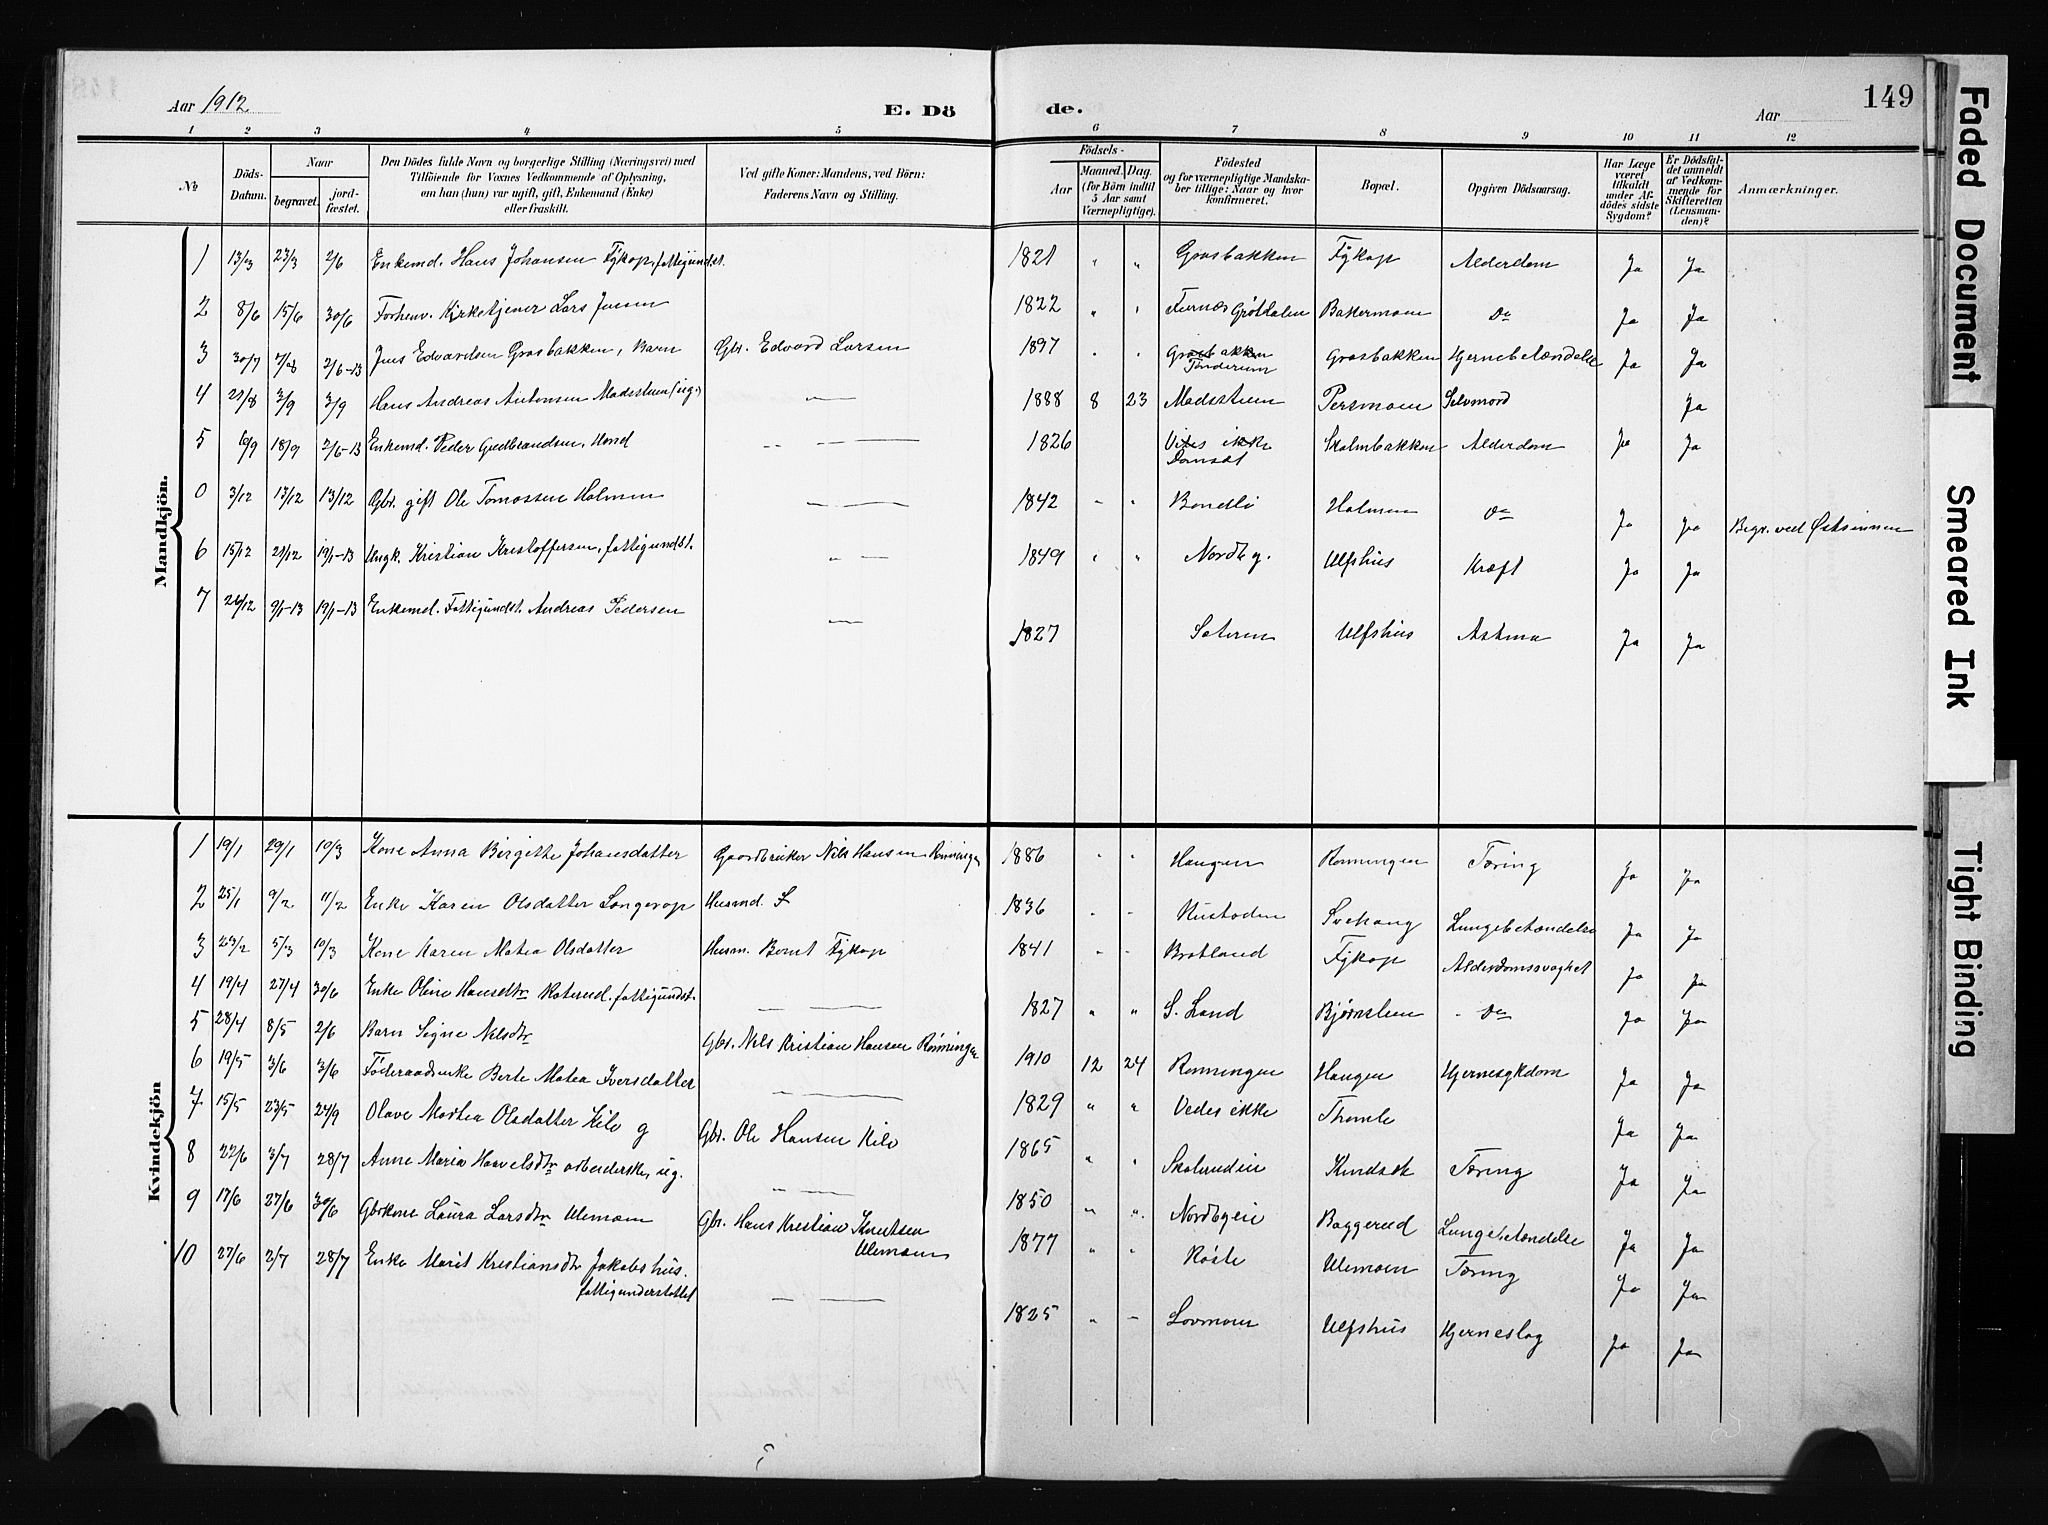 149
Aar 1912 E. Dö de. Aar
1 2 3 4 5 6 7 8 9 10 11 12
No Döds-Datum. Naar begravet. jord-fæstet. Den Dödes fulde Navn og borgerlige Stilling (Næringsvei) med Tilföiende för Voxnes Vedkommende af Oplysning, om han (hun) var ugift, gift, Enkemand (Enke) eller fraskilt. Ved gifte Koner: Mandens, ved Börn: Faderens Navn og Stilling. Födsels- Aar Maaned. Dag. (for Börn indtil 5 Aar samt Værnepligtige). Födested og for værnepligtige Mandskaber tillige: Naar og hvor konfirmeret. Bopæl. Opgiven Dödsaarsag. Har Læge været tilkaldt under Afdödes sidste Sygdom? Er Dödsfaldet anmeldt af Vedkommende for Skifteretten (Lensmanden)? Anmærkninger.
Mandkjön.
1 13/3 23/3 2/6 Enkemd. Hans Johansen Fykop, fattigundst. 1821 " " Grasbakken Fykop Alderdom Ja Ja
2 8/6 15/6 30/6 Forhenv. Kirketjener Lars Jensen 1822 " " Furnæs Grøtdalen Bakermoen Do Ja Ja
3 30/7 7/8 2/6-13 Jens Edvardsen Grasbakken, Barn Gbr. Edvard Larsen 1897 " " Grasbakken Tønderum Grasbakken Hjernebetændelse Ja Ja
4 27/8 3/9 3/9 Hans Andreas Antonsen Madsstuen (ug.) — 1888 8 23 Madsstuen Persmoen Selvmord Ja
5 10/9 18/9 2/6-13 Enkemd. Peder Gudbrandsen, Hond — 1826 Vides ikke Skolmbakken Alderdom Ja Ja
0 3/12 13/12 13/12 Gbr. gift Ole Tomassen Holmen — 1842 - " Bondli Holmen Do Ja Ja Begr. ved Østsinnen
6 15/12 21/12 19/1-13 Ungk. Kristian Kristoffersen, fattigundst. — 1849 " " Nordby. Ulfshus Kræft Ja Ja
7 26/12 9/1-13 19/1-13 Enkemd. Fattigundst. Andreas Pedersen — 1827 Sateren Ulfshus Astma Ja Ja
Kvindekjön
1 19/1 29/1 10/3 Kone Anna Birgitte Johansdatter Gaardbruker Nils Hansen Rønningen 1886 " " Haugen Rønningen Tæring Ja Ja
2 25/1 9/2 11/2 Enke Karen Olsdatter Langerop Husmd. 1836 " " Svehaug Lungebetændelse Ja Ja
3 23/2 5/3 10/3 Kone Karen Matea Olsdatter Husm. Bernt Fykop 1841 " " Bratland Fykop Alderdomssvaghet Ja Ja
4 19/4 27/4 30/6 Enke Oline Hansdtr Roterud, fattigundst. — 1827 " " S. Land Bjørnstuen Do Ja Ja
5 28/4 8/5 2/6 Barn Signe Nilsdtr Gbr. Nils Kristian Hansen Rønningen 1910 12 24 Rønningen Haugen Hjernesykdom Ja Ja
6 19/5 3/6 3/6 Føderaadsenke Berte Matea Iversdatter — 1829 " " Vedes ikke Thomle Ja Ja
7 15/5 23/5 24/9 Olave Martea Olsdatter Kile g Gbr. Ole Hansen Kile 1865 " " Skolerudeie Kindsæt Tæring Ja Ja
8 22/6 3/7 28/7 Anne Maria Havelsdtr arbeiderske, ug. — 1850 " " Nordbyeie Baggerud Lungebetændelse Ja Ja
9 17/6 27/6 30/6 Gbrkone Laura Larsdtr Ulemoen Gbr. Hans Kristian Knutsen Ulemoen 1877 " " Røste Ulemoen Tæring Ja Ja
10 27/6 2/7 28/7 Enke Marit Kristiansdtr Jakobshus. fattigunderstøttet — 1825 " - Lovmoen Ulfshus Hjerneslag Ja Ja
Faded Document
Smeared Ink
Tight Binding